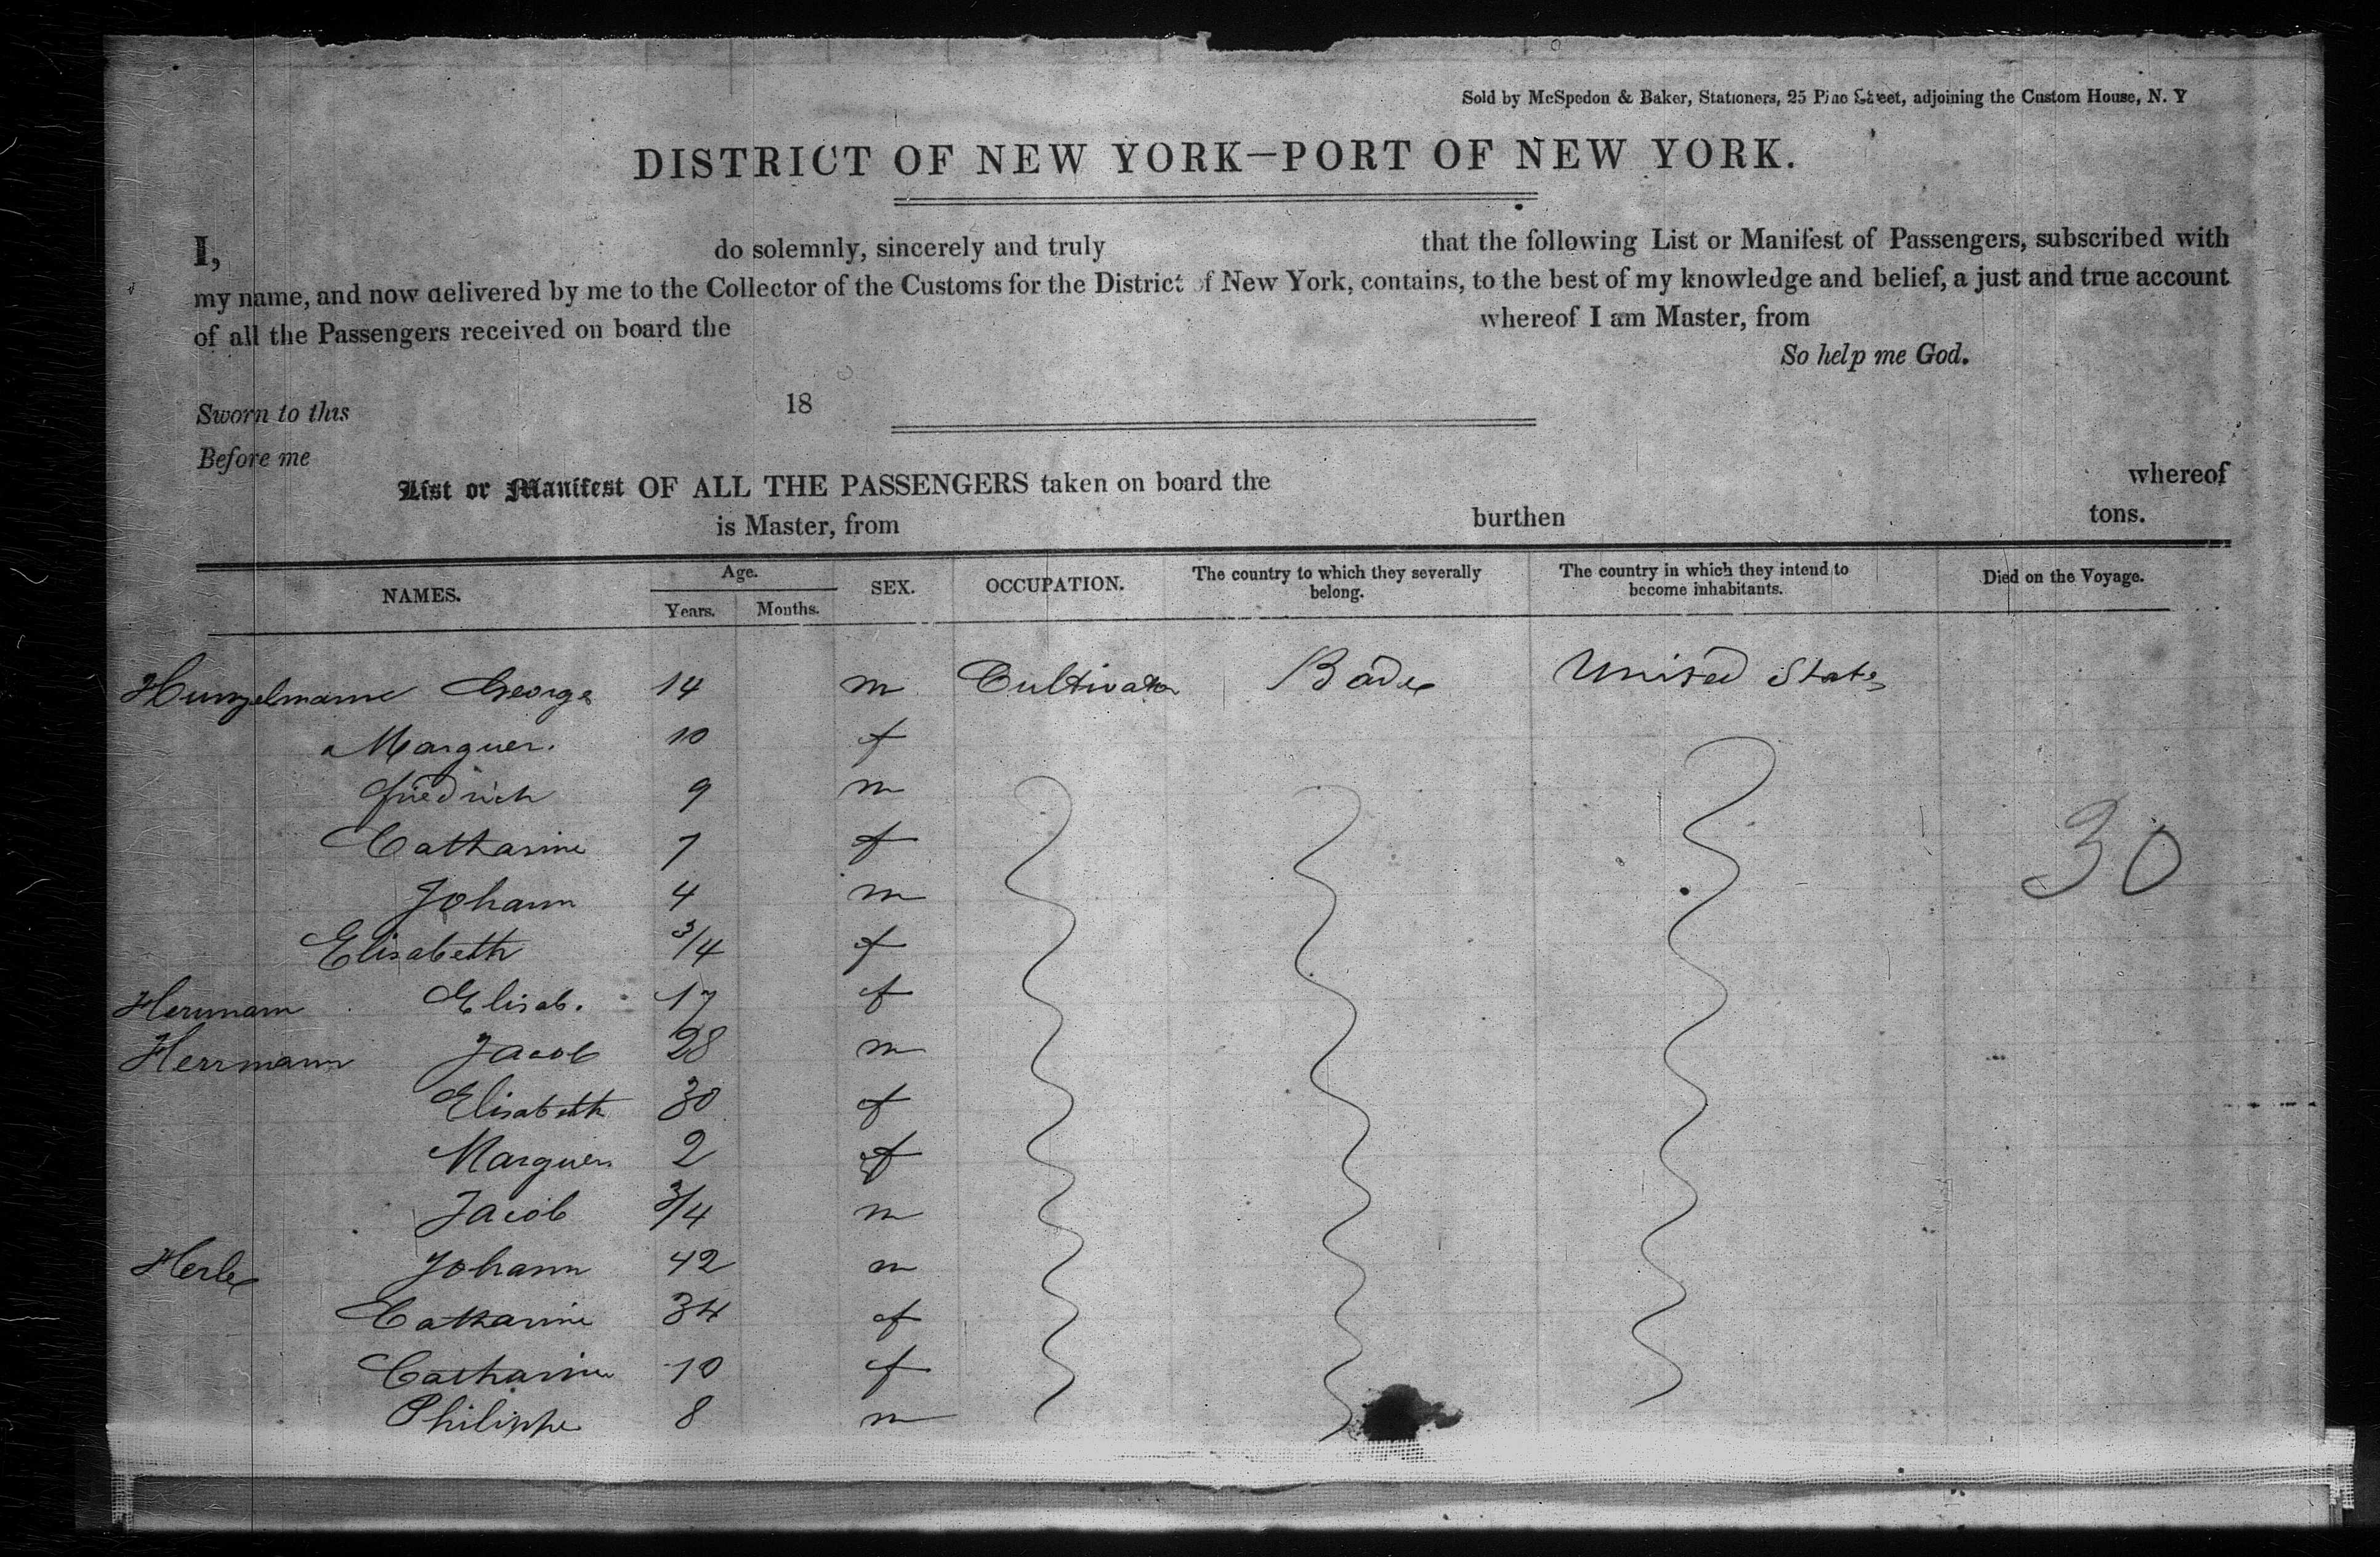 Sold by McSpedon & Baker, Stationers, 25 Pine Street, adjoining the Custom House, N. Y
DISTRICT OF NEW YORK—PORT OF NEW YORK.
I, do solemnly, sincerely and truly that the following List or Manifest of Passengers, subscribed with
my name, and now delivered by me to the Collector of the Customs for the District of New York, contains, to the best of my knowledge and belief, a just and true account
of all the Passengers received on board the whereof I am Master, from
So help me God.
Sworn to this 18
Before me
List or Manifest OF ALL THE PASSENGERS taken on board the whereof
is Master, from burthen tons.
NAMES. Age. Years. Months. SEX. OCCUPATION. The country to which they severally belong. The country in which they intend to become inhabitants. Died on the Voyage.
Hunzelmann George 14 m Cultivator Bade United States
Marguer. 10 f
friedrich 9 m
Catharine 7 f
Johann 4 m
30
Elisabeth 3/4 f
Herrmann Elisab. 17 f
Herrmann Jacob 28 m
Elisabeth 30 f
Marguer. 2 f
Jacob 3/4 m
Herle Johann 42 m
Catharine 34 f
Catharine 10 f
Philippe 8 m